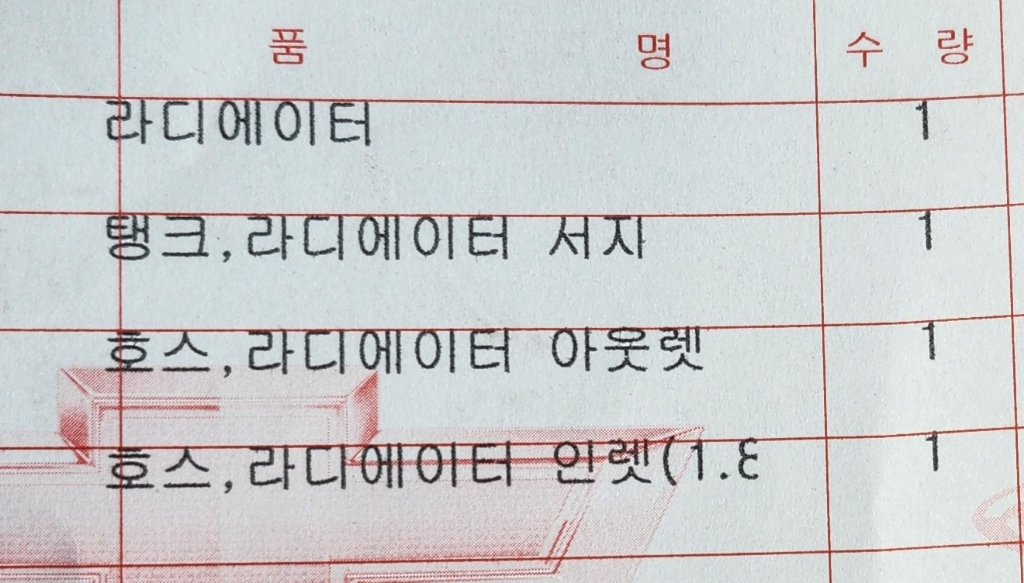 품 명 수 량
라디에이터 1
탱크,라디에이터 서지 1
호스,라디에이터 아웃렛 1
호스,라디에이터 인렛 1